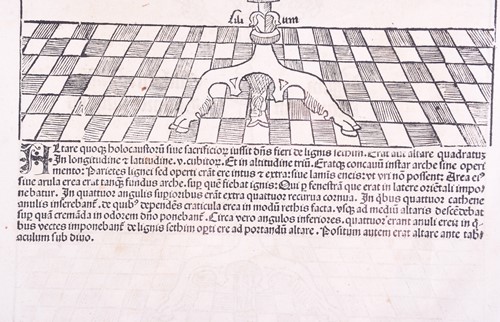 Lili um
Altare quoqꝫ holocaustorū siue sacrificioꝝ iussit dn̄s fieri de lignis sethim. Erat aut̄ altare quadratuꝫ
In longitudine ⁊ latitudine .v. cubitoꝝ. Et in altitudine triū. Eratqꝫ concauū instar arche sine operi
mento: Parietes lignei sed operti erāt ere intus ⁊ extra: siue lamīs eneis: vt vri nō possent: Area ei⁹
siue arula erea erat tanqꝫ fundus arche. sup quē fiebat ignis: Qui ꝑ fenestrā que erat in latere oriētali impo
nebatur. In quattuor angulis supioribus erāt extra quattuor recurua cornua. In q̄bus quattuor cathene
anulis inserebant̄. de quib⁹ dependēs craticula erea in modū rethis facta. vsqꝫ ad mediū altaris descēdebat
sup quā cremāda in odorem dn̄o ponebant̄. Circa vero angulos inferiores. quattuor erant anuli erei in q̄
bus vectes imponebant̄ de lignis sethim opti ere ad portandū altare. Positum autem erat altare ante tab
aculum sub diuo.